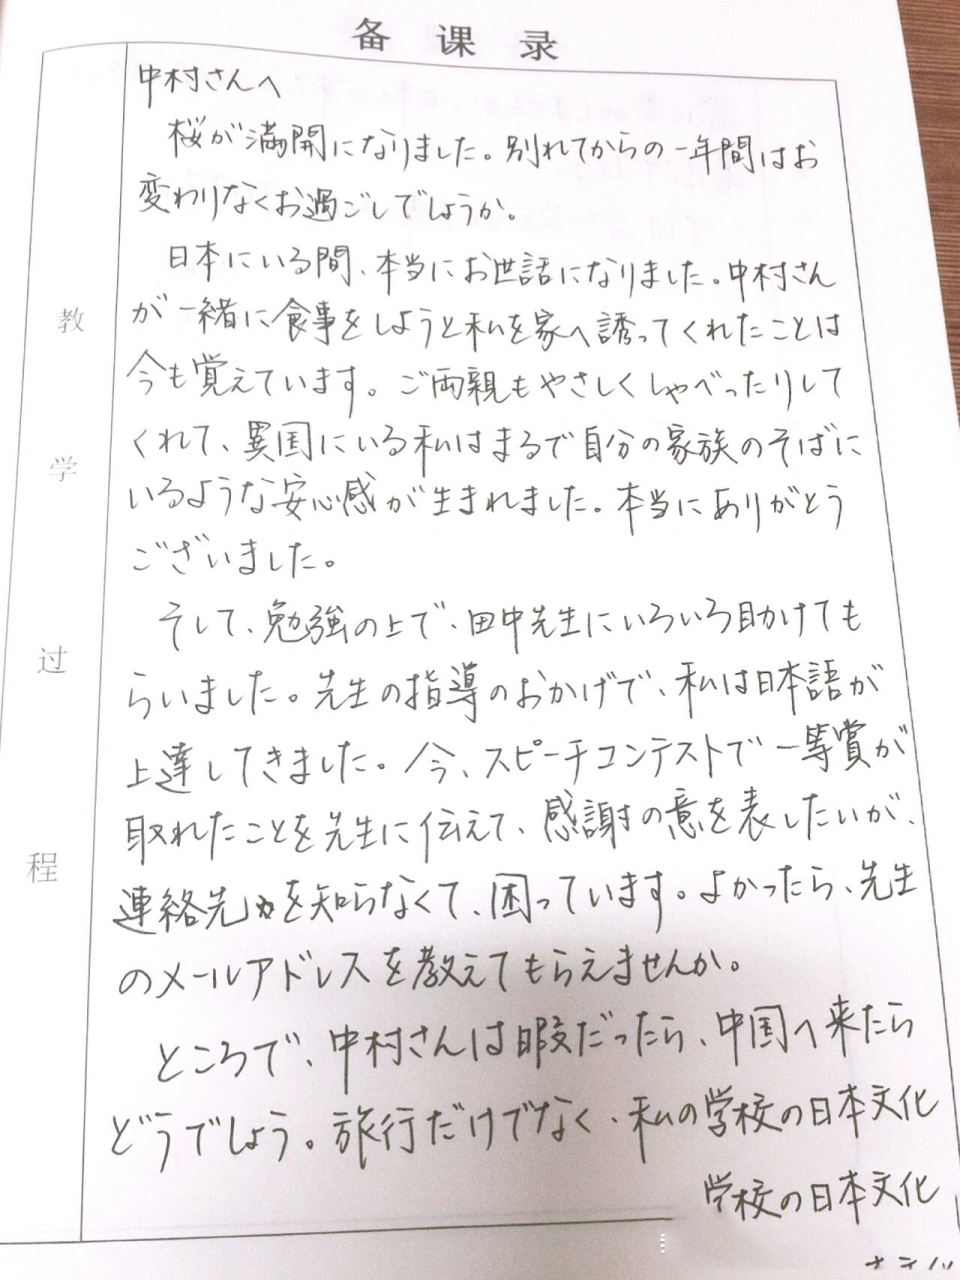 备课录
中村さんへ
桜が満開になりました。別れてからの一年間はお
変わりなくお過ごしでしょうか。
日本にいる間、本当にお世話になりました。中村さん
が一緒に食事をしようと私を家へ誘ってくれたことは
今も覚えています。ご両親もやさしくしゃべったりして
くれて、異国にいる私はまるで自分の家族のそばに
いるような安心感が生まれました。本当にありがとう
ございました。
そして、勉強の上で、田中先生にいろいろ助けても
らいました。先生の指導のおかげで、私は日本語が
上達してきました。今、スピーチコンテストで一等賞が
取れたことを先生に伝えて、感謝の意を表したいが、
連絡先を知らなくて、困っています。よかったら、先生
のメールアドレスを教えてもらえませんか。
ところで、中村さんは暇だったら、中国へ来たら
どうでしょう。旅行だけでなく、私の学校の日本文化
学校の日本文化
教
学
过
程